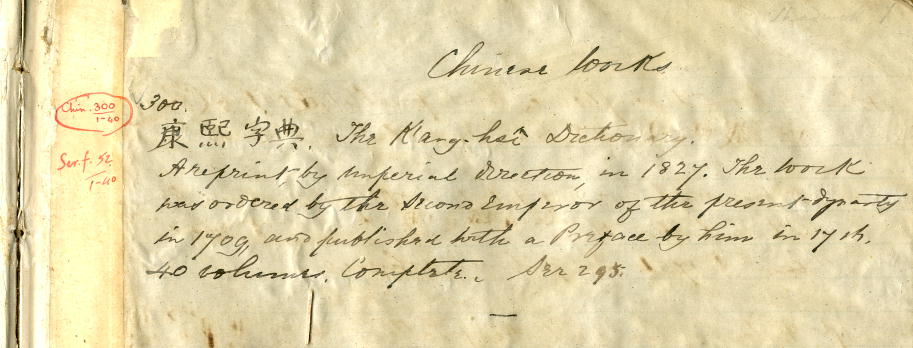 Chinese Works
Chin. 300
1-40
Ser. f. 52
1-40
300.
康熙字典. The K'ang-hsî Dictionary.
A reprint, by imperial direction, in 1827. The work
was ordered by the second Emperor of the present dynasty
in 1709, and published with a Preface by him in 1716.
40 volumes. Complete.